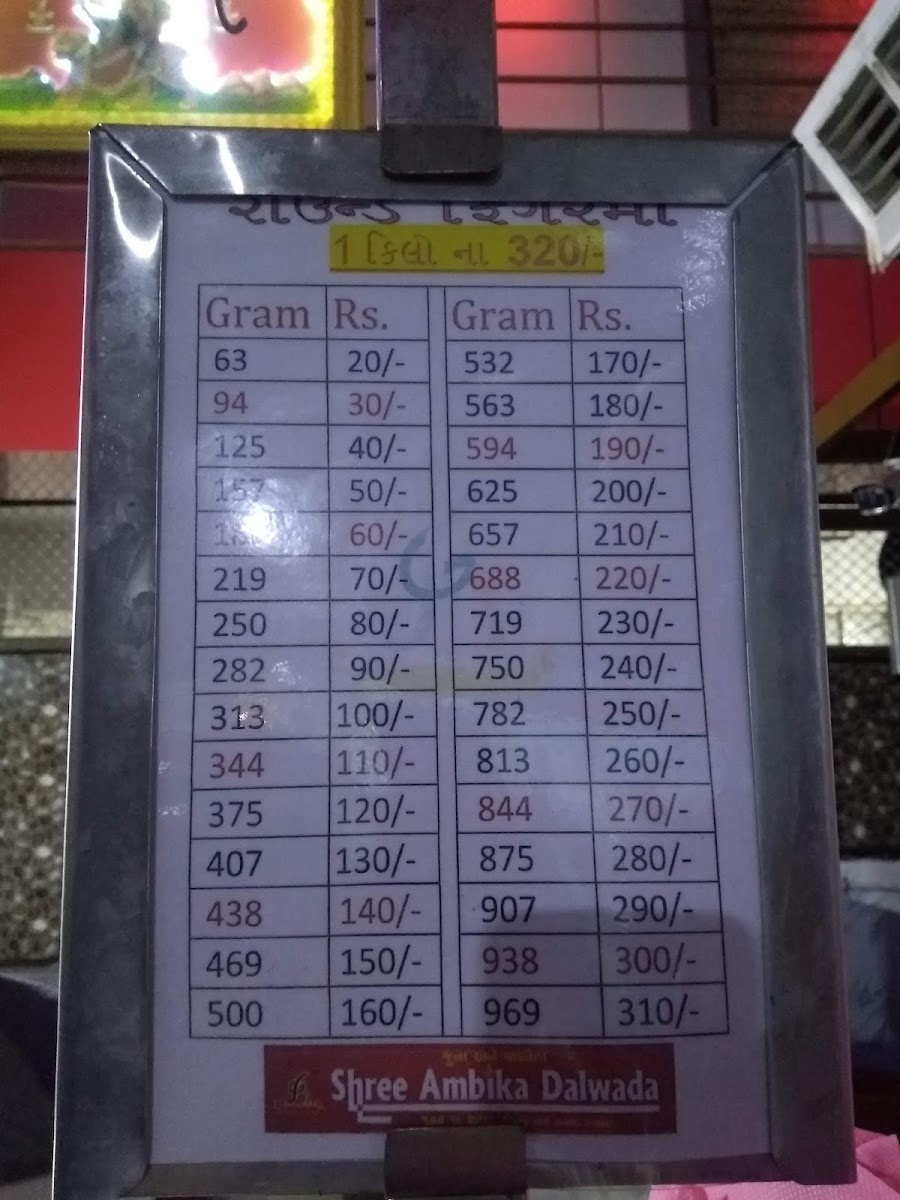 રાઉન્ડ ફિંગરમાં
1 કિલો ના 320/-
Gram Rs. Gram Rs.
63 20/- 532 170/-
94 30/- 563 180/-
125 40/- 594 190/-
157 50/- 625 200/-
60/- 657 210/-
219 70/- 688 220/-
250 80/- 719 230/-
282 90/- 750 240/-
313 100/- 782 250/-
344 110/- 813 260/-
375 120/- 844 270/-
407 130/- 875 280/-
438 140/- 907 290/-
469 150/- 938 300/-
500 160/- 969 310/-
Shree Ambika Dalwada